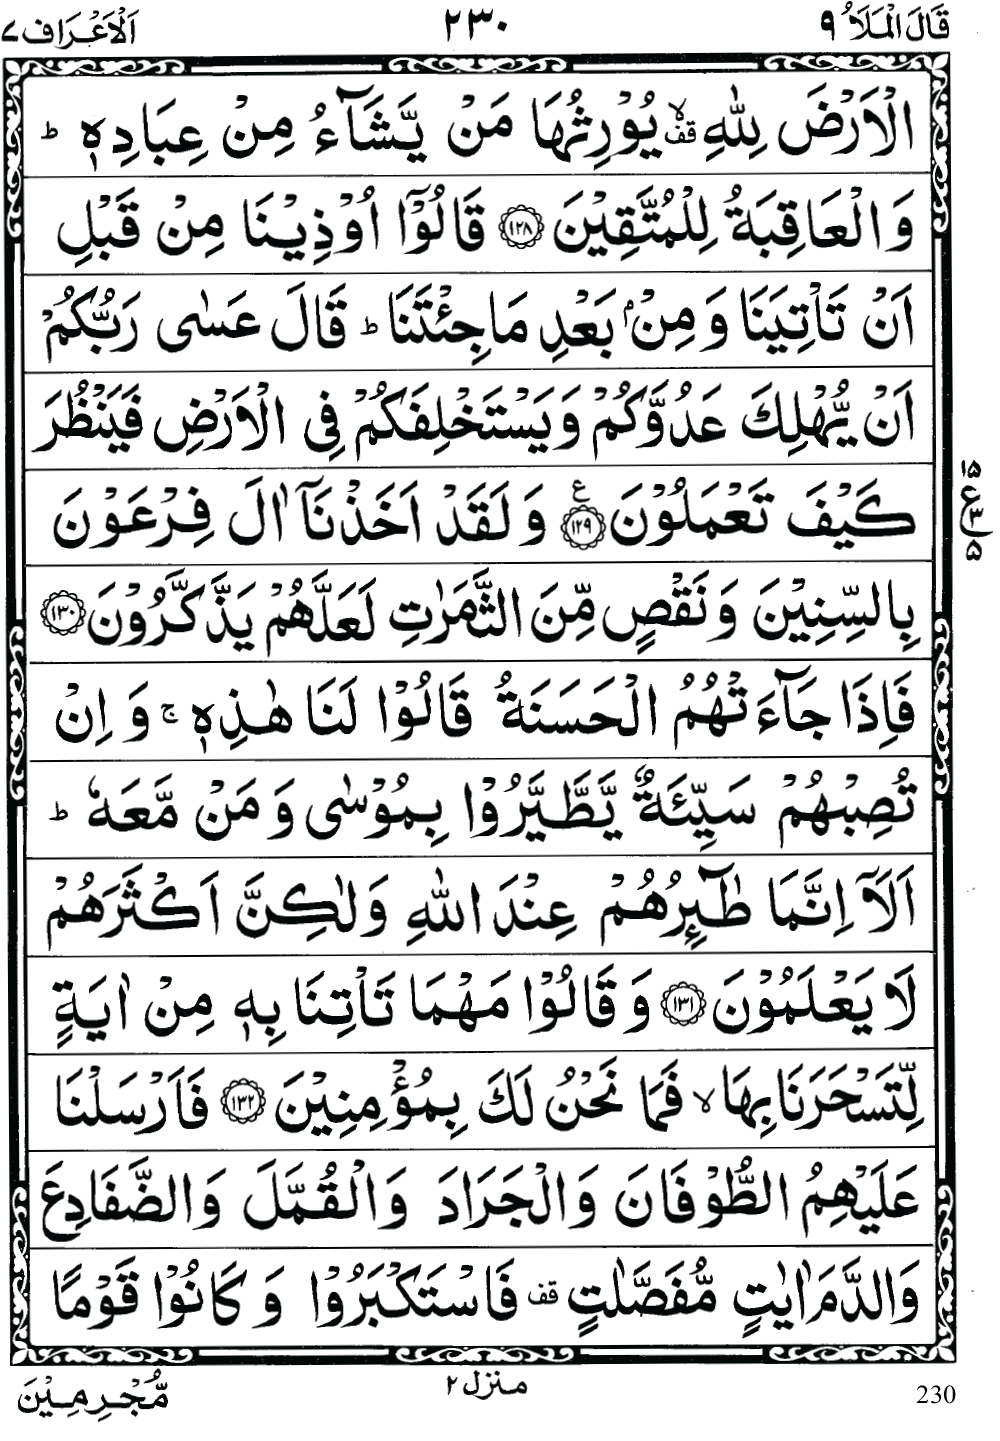 قَالَ الْمَلَاُ ۹ ۲۳۰ اَلْاَعْرَاف ۷
الْاَرْضَ لِلّٰهِ ۙقف يُوْرِثُهَا مَنْ يَّشَآءُ مِنْ عِبَادِهٖ ؕ
وَالْعَاقِبَةُ لِلْمُتَّقِيْنَ ۱۲۸ قَالُوْۤا اُوْذِيْنَا مِنْ قَبْلِ
اَنْ تَاْتِيَنَا وَمِنْۢ بَعْدِ مَا جِئْتَنَا ؕ قَالَ عَسٰى رَبُّكُمْ
اَنْ يُّهْلِكَ عَدُوَّكُمْ وَيَسْتَخْلِفَكُمْ فِى الْاَرْضِ فَيَنْظُرَ
كَيْفَ تَعْمَلُوْنَ ۱۲۹ ع وَلَقَدْ اَخَذْنَاۤ اٰلَ فِرْعَوْنَ
۱۵ ع ۳ ۵
بِالسِّنِيْنَ وَنَقْصٍ مِّنَ الثَّمَرٰتِ لَعَلَّهُمْ يَذَّكَّرُوْنَ ۱۳۰
فَاِذَا جَآءَتْهُمُ الْحَسَنَةُ قَالُوْا لَنَا هٰذِهٖ ۚ وَاِنْ
تُصِبْهُمْ سَيِّئَةٌ يَّطَّيَّرُوْا بِمُوْسٰى وَمَنْ مَّعَهٗ ؕ
اَلَاۤ اِنَّمَا طٰٓئِرُهُمْ عِنْدَ اللّٰهِ وَلٰكِنَّ اَكْثَرَهُمْ
لَا يَعْلَمُوْنَ ۱۳۱ وَقَالُوْا مَهْمَا تَاْتِنَا بِهٖ مِنْ اٰيَةٍ
لِّتَسْحَرَنَا بِهَا ۙ فَمَا نَحْنُ لَكَ بِمُؤْمِنِيْنَ ۱۳۲ فَاَرْسَلْنَا
عَلَيْهِمُ الطُّوْفَانَ وَالْجَرَادَ وَالْقُمَّلَ وَالضَّفَادِعَ
وَالدَّمَ اٰيٰتٍ مُّفَصَّلٰتٍ قف فَاسْتَكْبَرُوْا وَكَانُوْا قَوْمًا
منزل ۲
مُّجْرِمِيْنَ
230